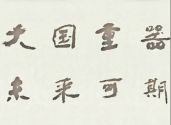 大国重器
未来可期